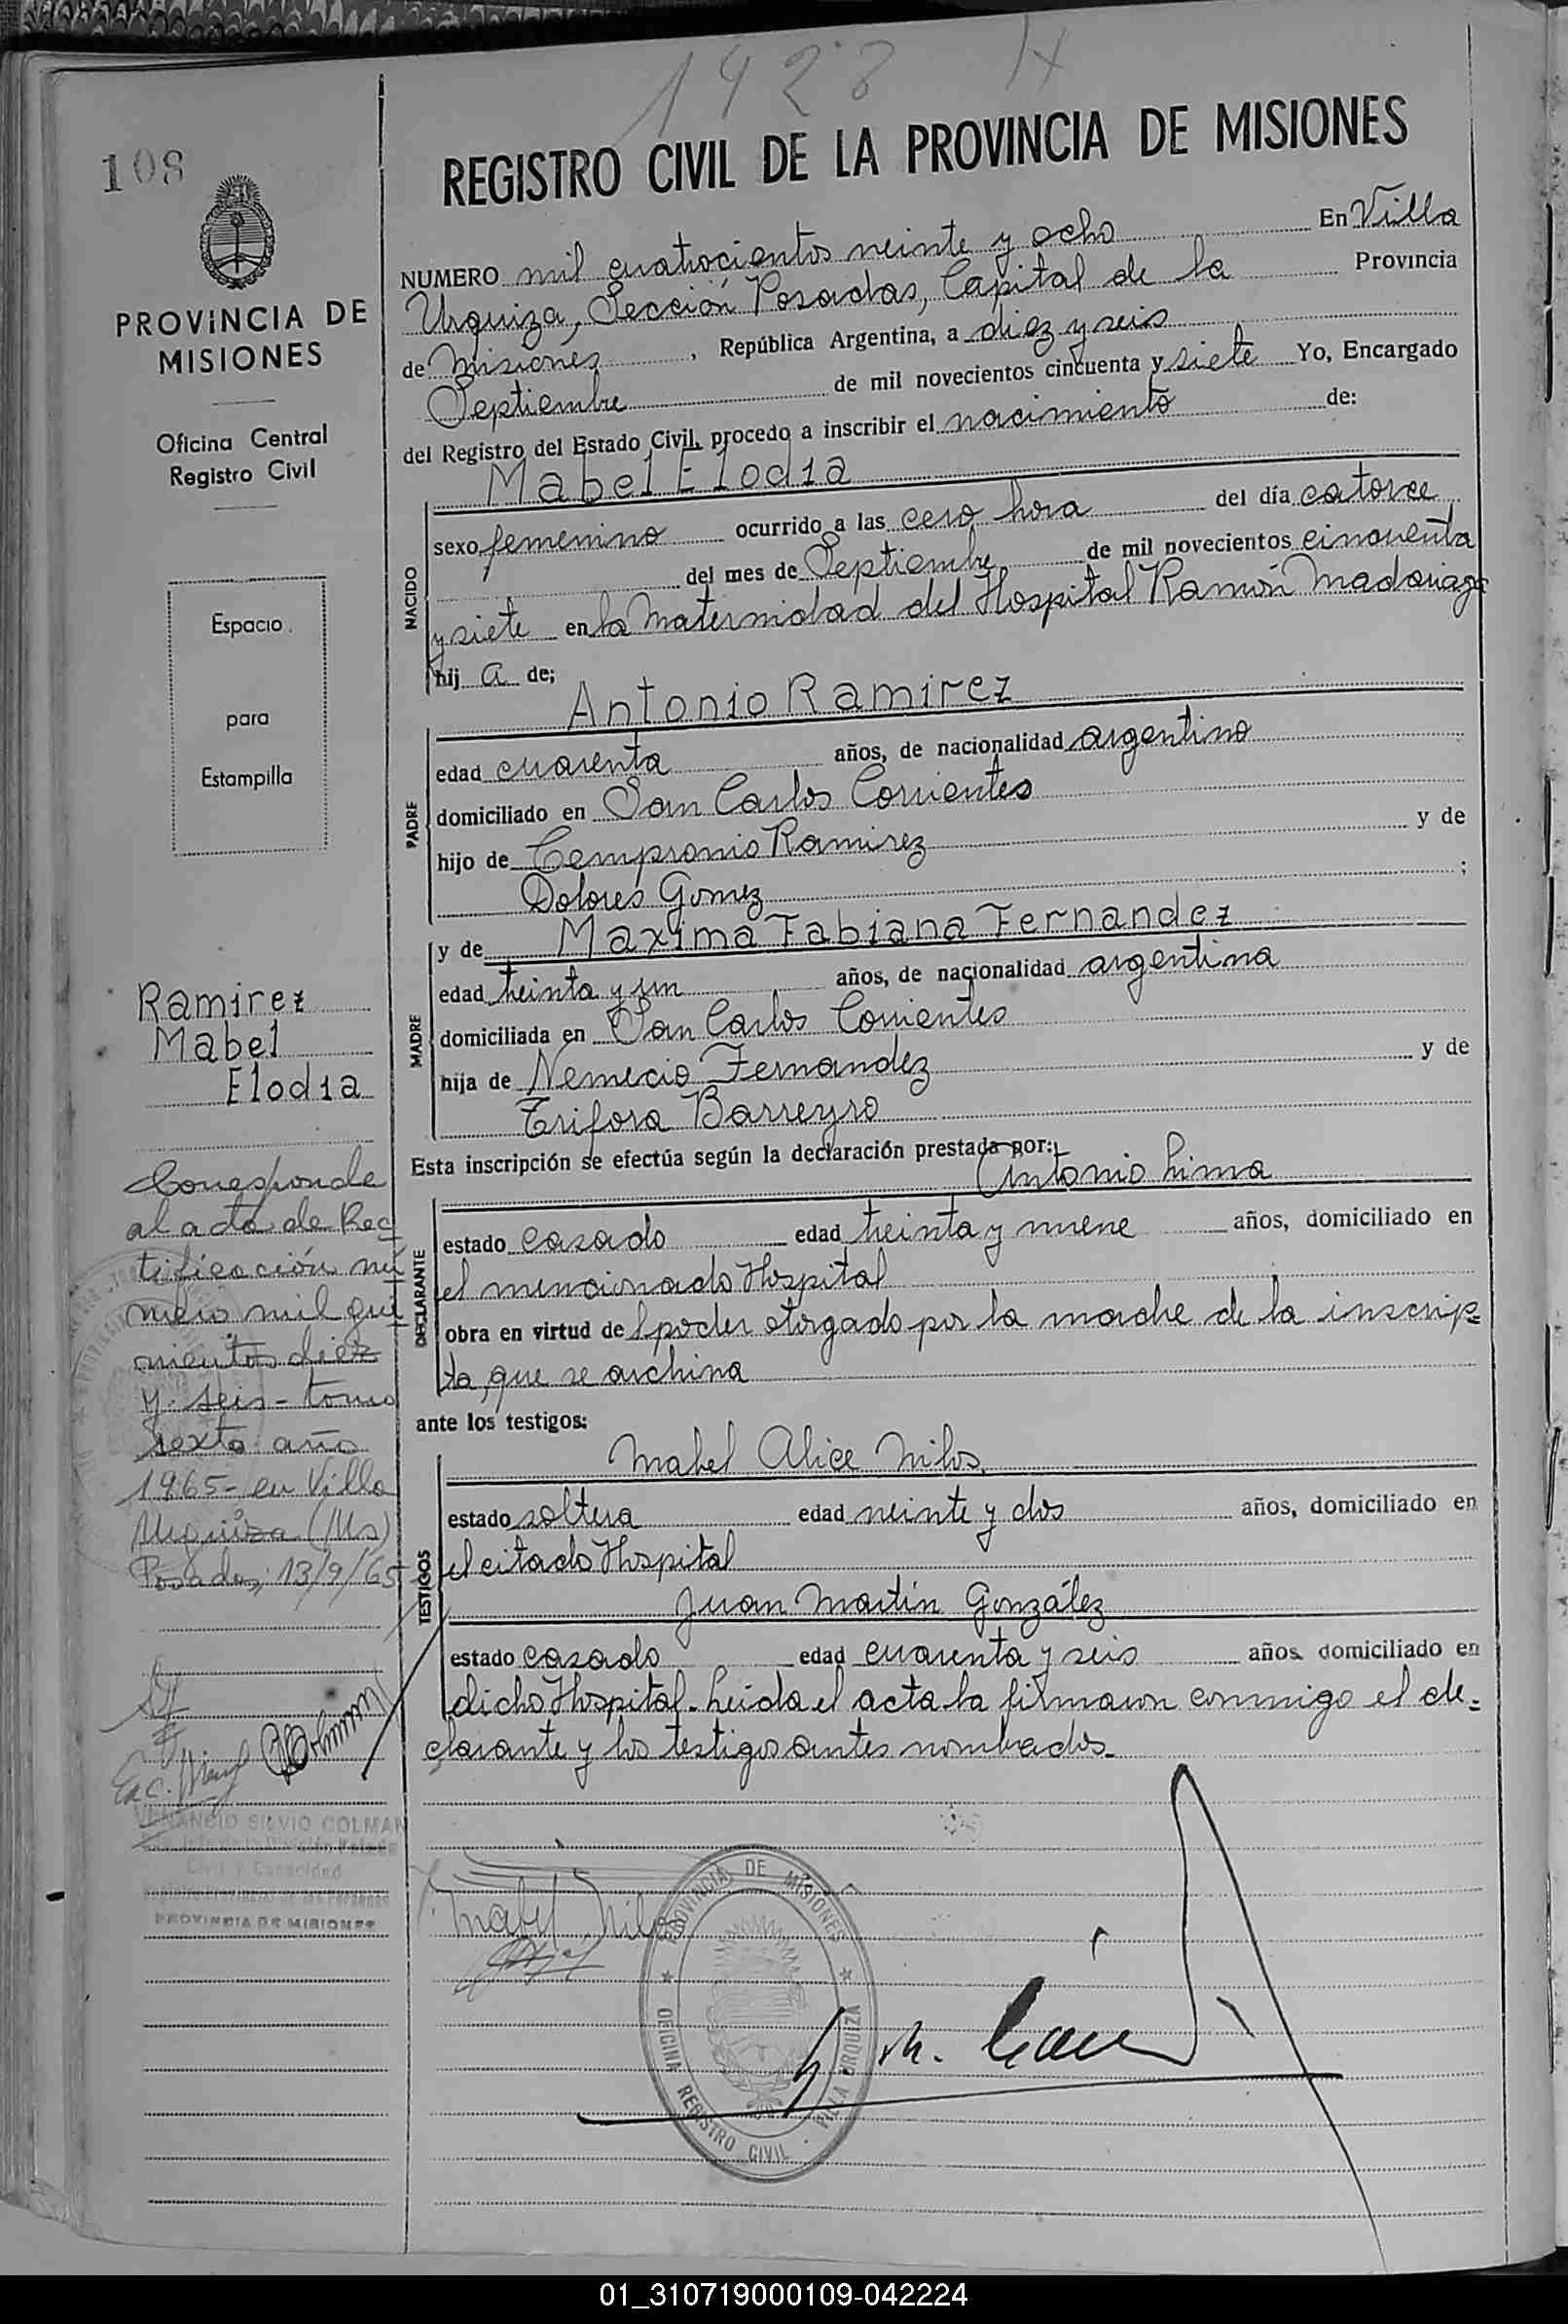 1428
108
PROVINCIA DE
MISIONES
Oficina Central
Registro Civil
Espacio
para
Estampilla
Ramirez
Mabel
Elodia
Corresponde
al acta de Rec
tificación nú
mero mil qui
nientos diez
y seis - tomo
sexto año
1965 - en Villa
Urquiza (Ms)
Posadas, 13/9/65
VENANCIO SILVIO COLMAN
Civil y Capacidad
PROVINCIA DE MISIONES
REGISTRO CIVIL DE LA PROVINCIA DE MISIONES
NUMERO mil cuatrocientos veinte y ocho En Villa
Urquiza, Sección Posadas, Capital de la Provincia
de Misiones, República Argentina, a diez y seis
Septiembre de mil novecientos cincuenta y siete Yo, Encargado
del Registro del Estado Civil, procedo a inscribir el nacimiento de:
Mabel Elodia
NACIDO
sexo femenino ocurrido a las cero hora del día catorce
del mes de Septiembre de mil novecientos cincuenta
y siete en la Maternidad del Hospital Ramón Madariaga
hij a de;
Antonio Ramirez
PADRE
edad cuarenta años, de nacionalidad argentino
domiciliado en San Carlos Corrientes
hijo de Cempronio Ramirez y de
Dolores Gomez ;
y de Maxima Fabiana Fernandez
MADRE
edad treinta y un años, de nacionalidad argentina
domiciliada en San Carlos Corrientes
hija de Nemecio Fernandez y de
Trifora Barreyro
Esta inscripción se efectúa según la declaración prestada por:
Antonio Lima
DECLARANTE
estado casado edad treinta y nueve años, domiciliado en
el mencionado Hospital
obra en virtud del poder otorgado por la madre de la inscrip=
ta, que se archiva
ante los testigos:
Mabel Alice Nilos
TESTIGOS
estado soltera edad veinte y dos años, domiciliado en
el citado Hospital
Juan Martin González
estado casado edad cuarenta y seis años domiciliado en
dicho Hospital. Leida el acta la firmaron conmigo el de=
clarante y los testigos antes nombrados.
Mabel Nilos
PROVINCIA DE MISIONES
OFICINA REGISTRO CIVIL - VILLA URQUIZA
01_310719000109-042224